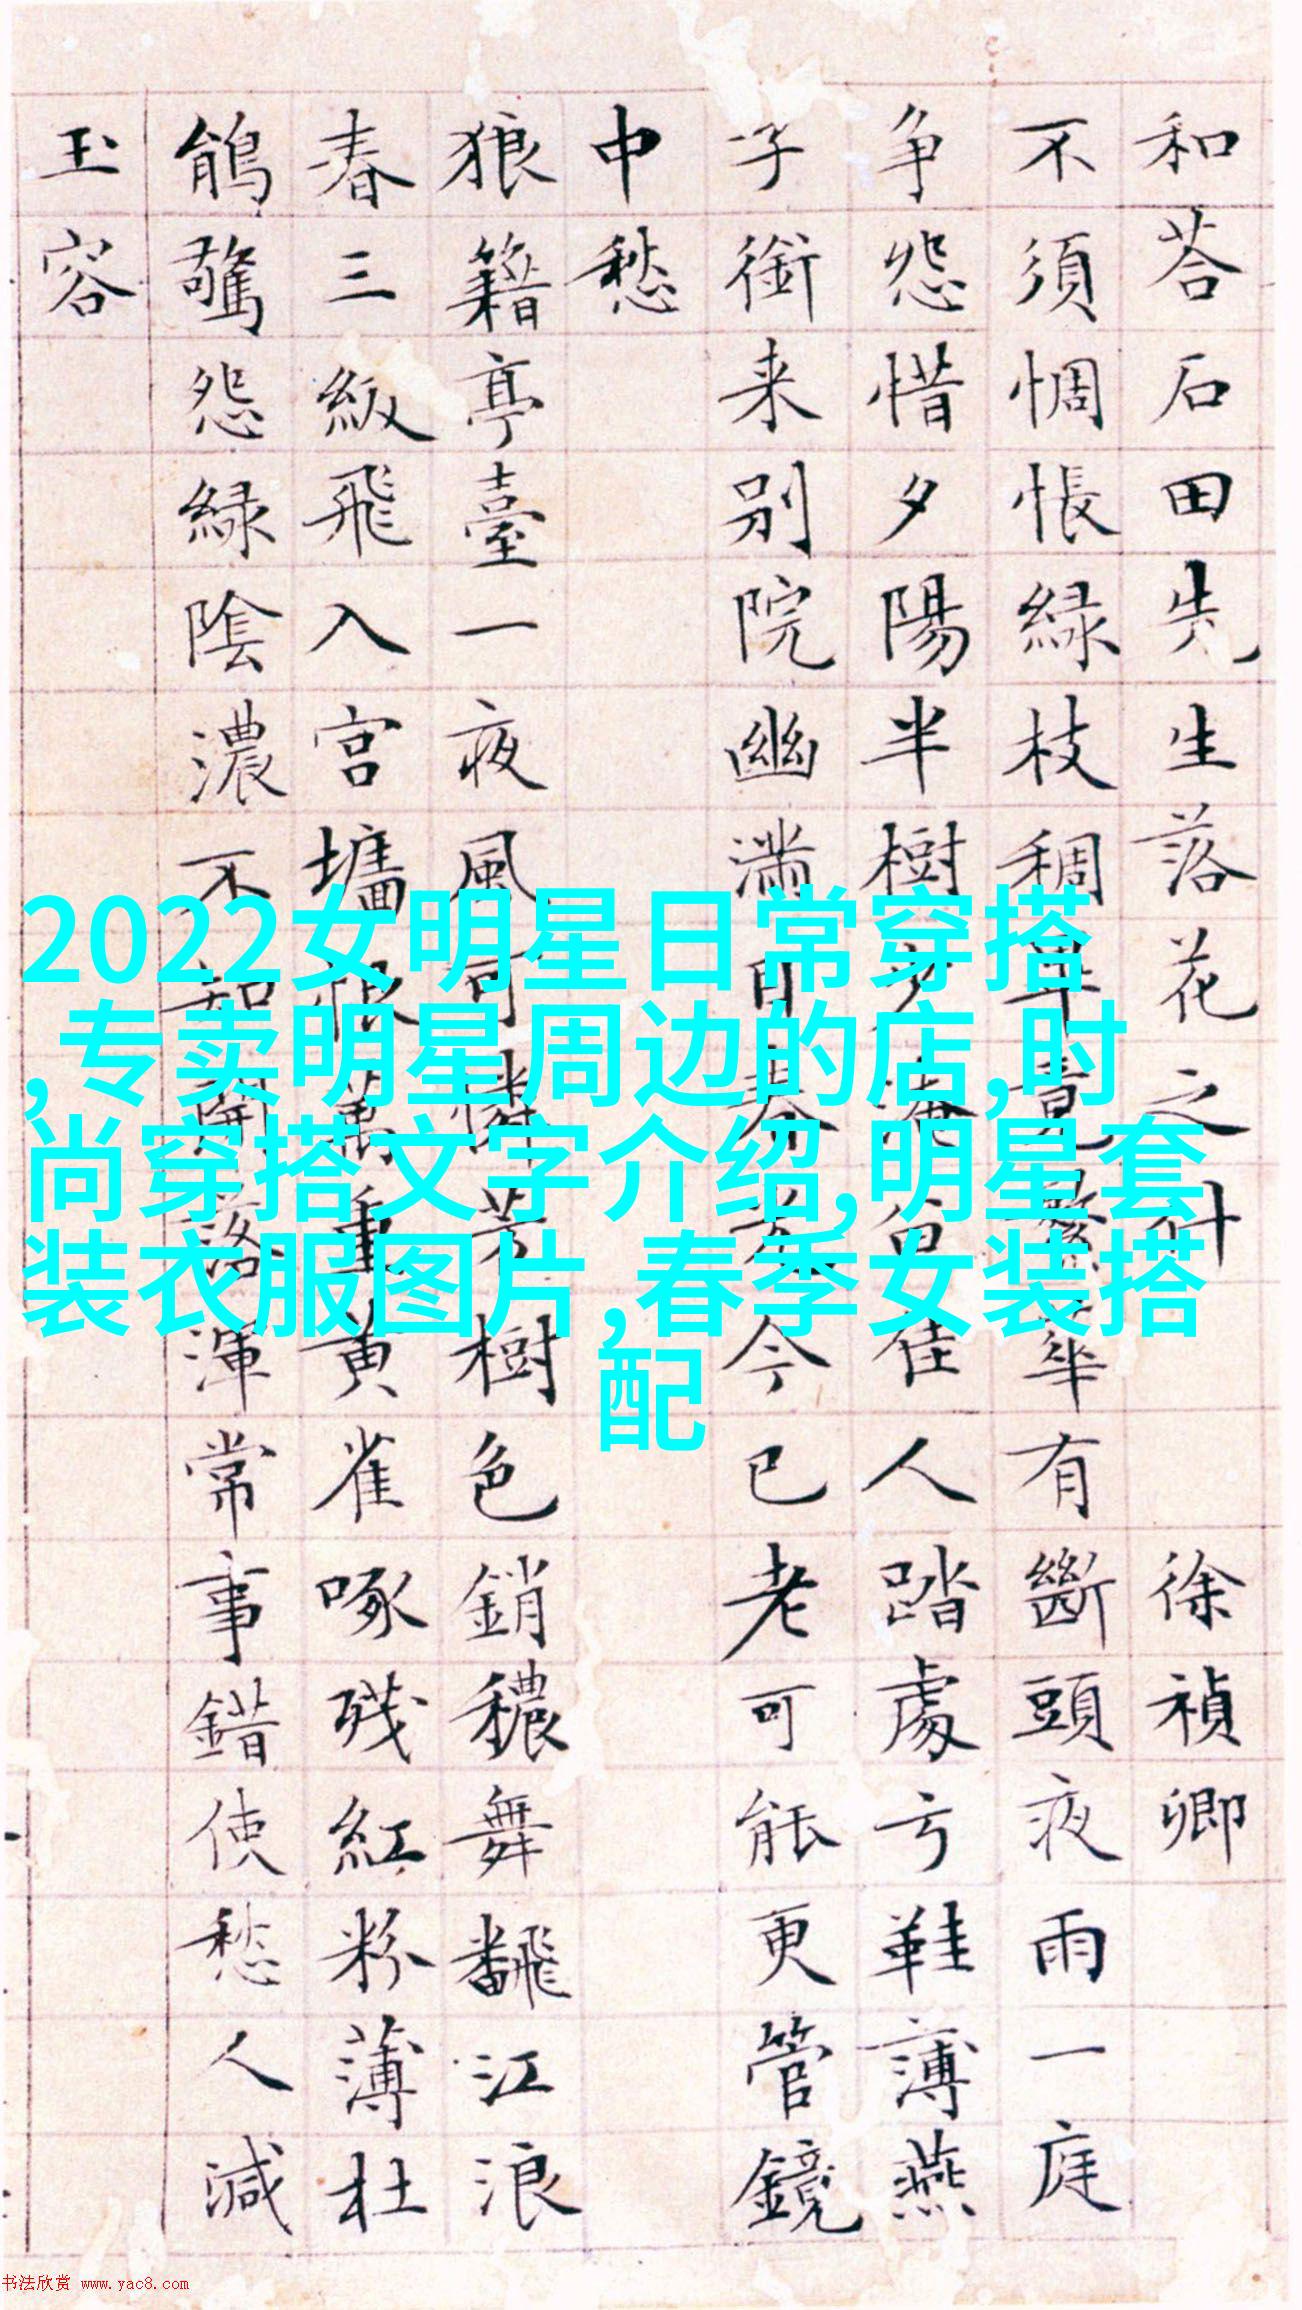 和荅石田先生落花之什 徐禎卿
不須惆悵緑枝稠竟繁華有斷頭夜雨一庭
争怨惜夕陽半樹少淹留佳人踏處弓鞋薄燕
子銜来别院幽滿目春光今已老可能更管鏡
中愁
狼籍亭臺一夜風可憐芳樹色銷穠舞飜江浪
春三級飛入宫墻恨萬重黄雀啄残紅粉薄杜
鵑驚怨緑陰濃不知開落渾常事錯使愁人減
玉容
2022女明星日常穿搭
,专卖明星周边的店,时
尚穿搭文字介绍,明星套
装衣服图片,春季女装搭
配
书法欣赏 www.yac8.com